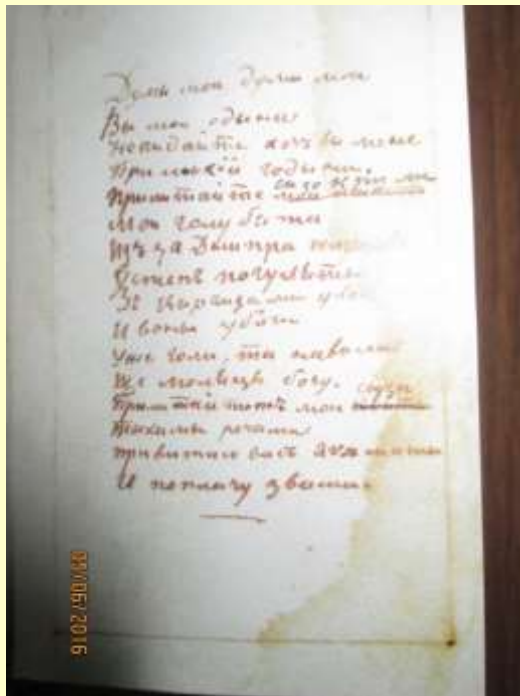 Думы мои думы мои
Вы мои одыни
Некидайте хочъ вы мене
При лыхій годыни.
Прилитайте сизокрыли
Мои голубята
Изъ за Днипра
Устепъ погуляты
Зъ Киргизами
И воны убоги
Уже голи, та наволи
Ще молюцця богу.
Прилитайте жъ мои
Тыхымы речамы
привитаю васъ якъ
И поплачу звами
09/06/2016